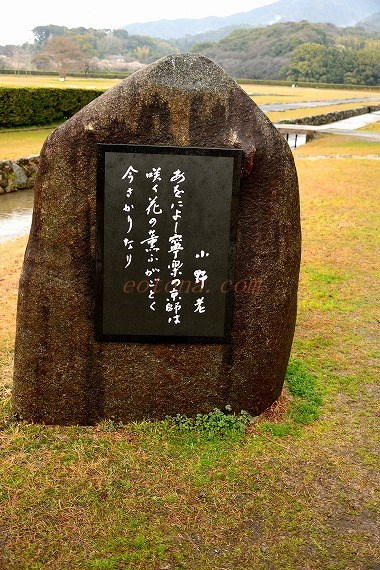 小野老
あをによし寧楽の京師は
咲く花の薫ふがごとく
今さかりなり
eotona.com